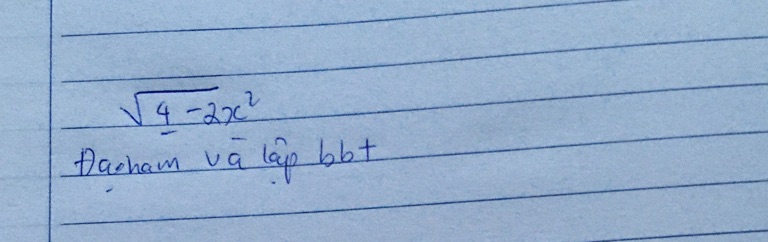 √4-2x²
Đạo ham và lập bbt